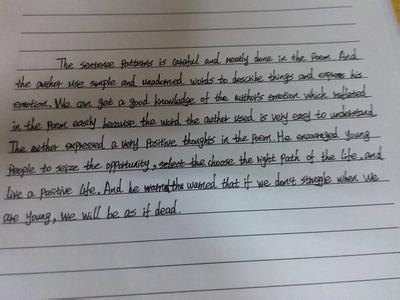 The sentence Patterns is careful and neatly done in the Poem. And
the author use simple and unadorned words to describe things and express his
emotion. We can get a good knowledge of the author's emotion which reflected
in the poem easily because the word the author used is very easy to understand
The author expressed a very Positive thoughts in the Poem. He encouraged Young
People to seize the opportunity, select the choose the right Path of the life, and
live a Positive life. And he warned that if we don't struggle when we
are young, we will be as if dead.